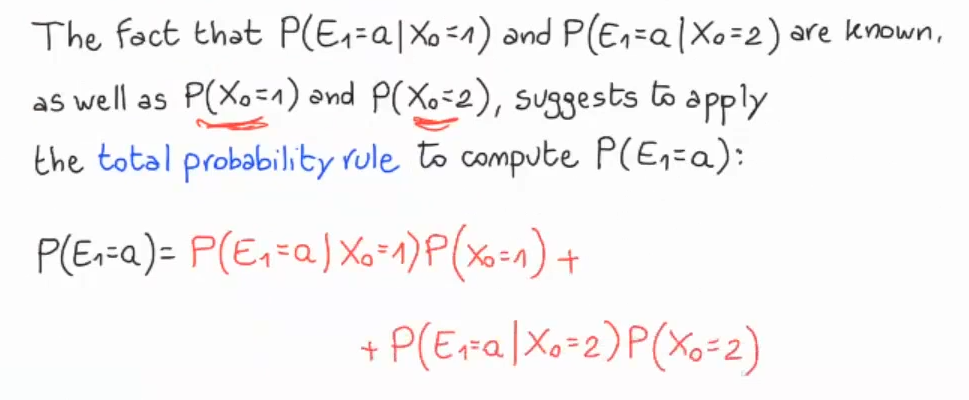 The fact that P(E₁=a|X₀=1) and P(E₁=a|X₀=2) are known,
as well as P(X₀=1) and P(X₀=2), suggests to apply
the total probability rule to compute P(E₁=a):
P(E₁=a)= P(E₁=a|X₀=1)P(X₀=1) +
+ P(E₁=a|X₀=2)P(X₀=2)